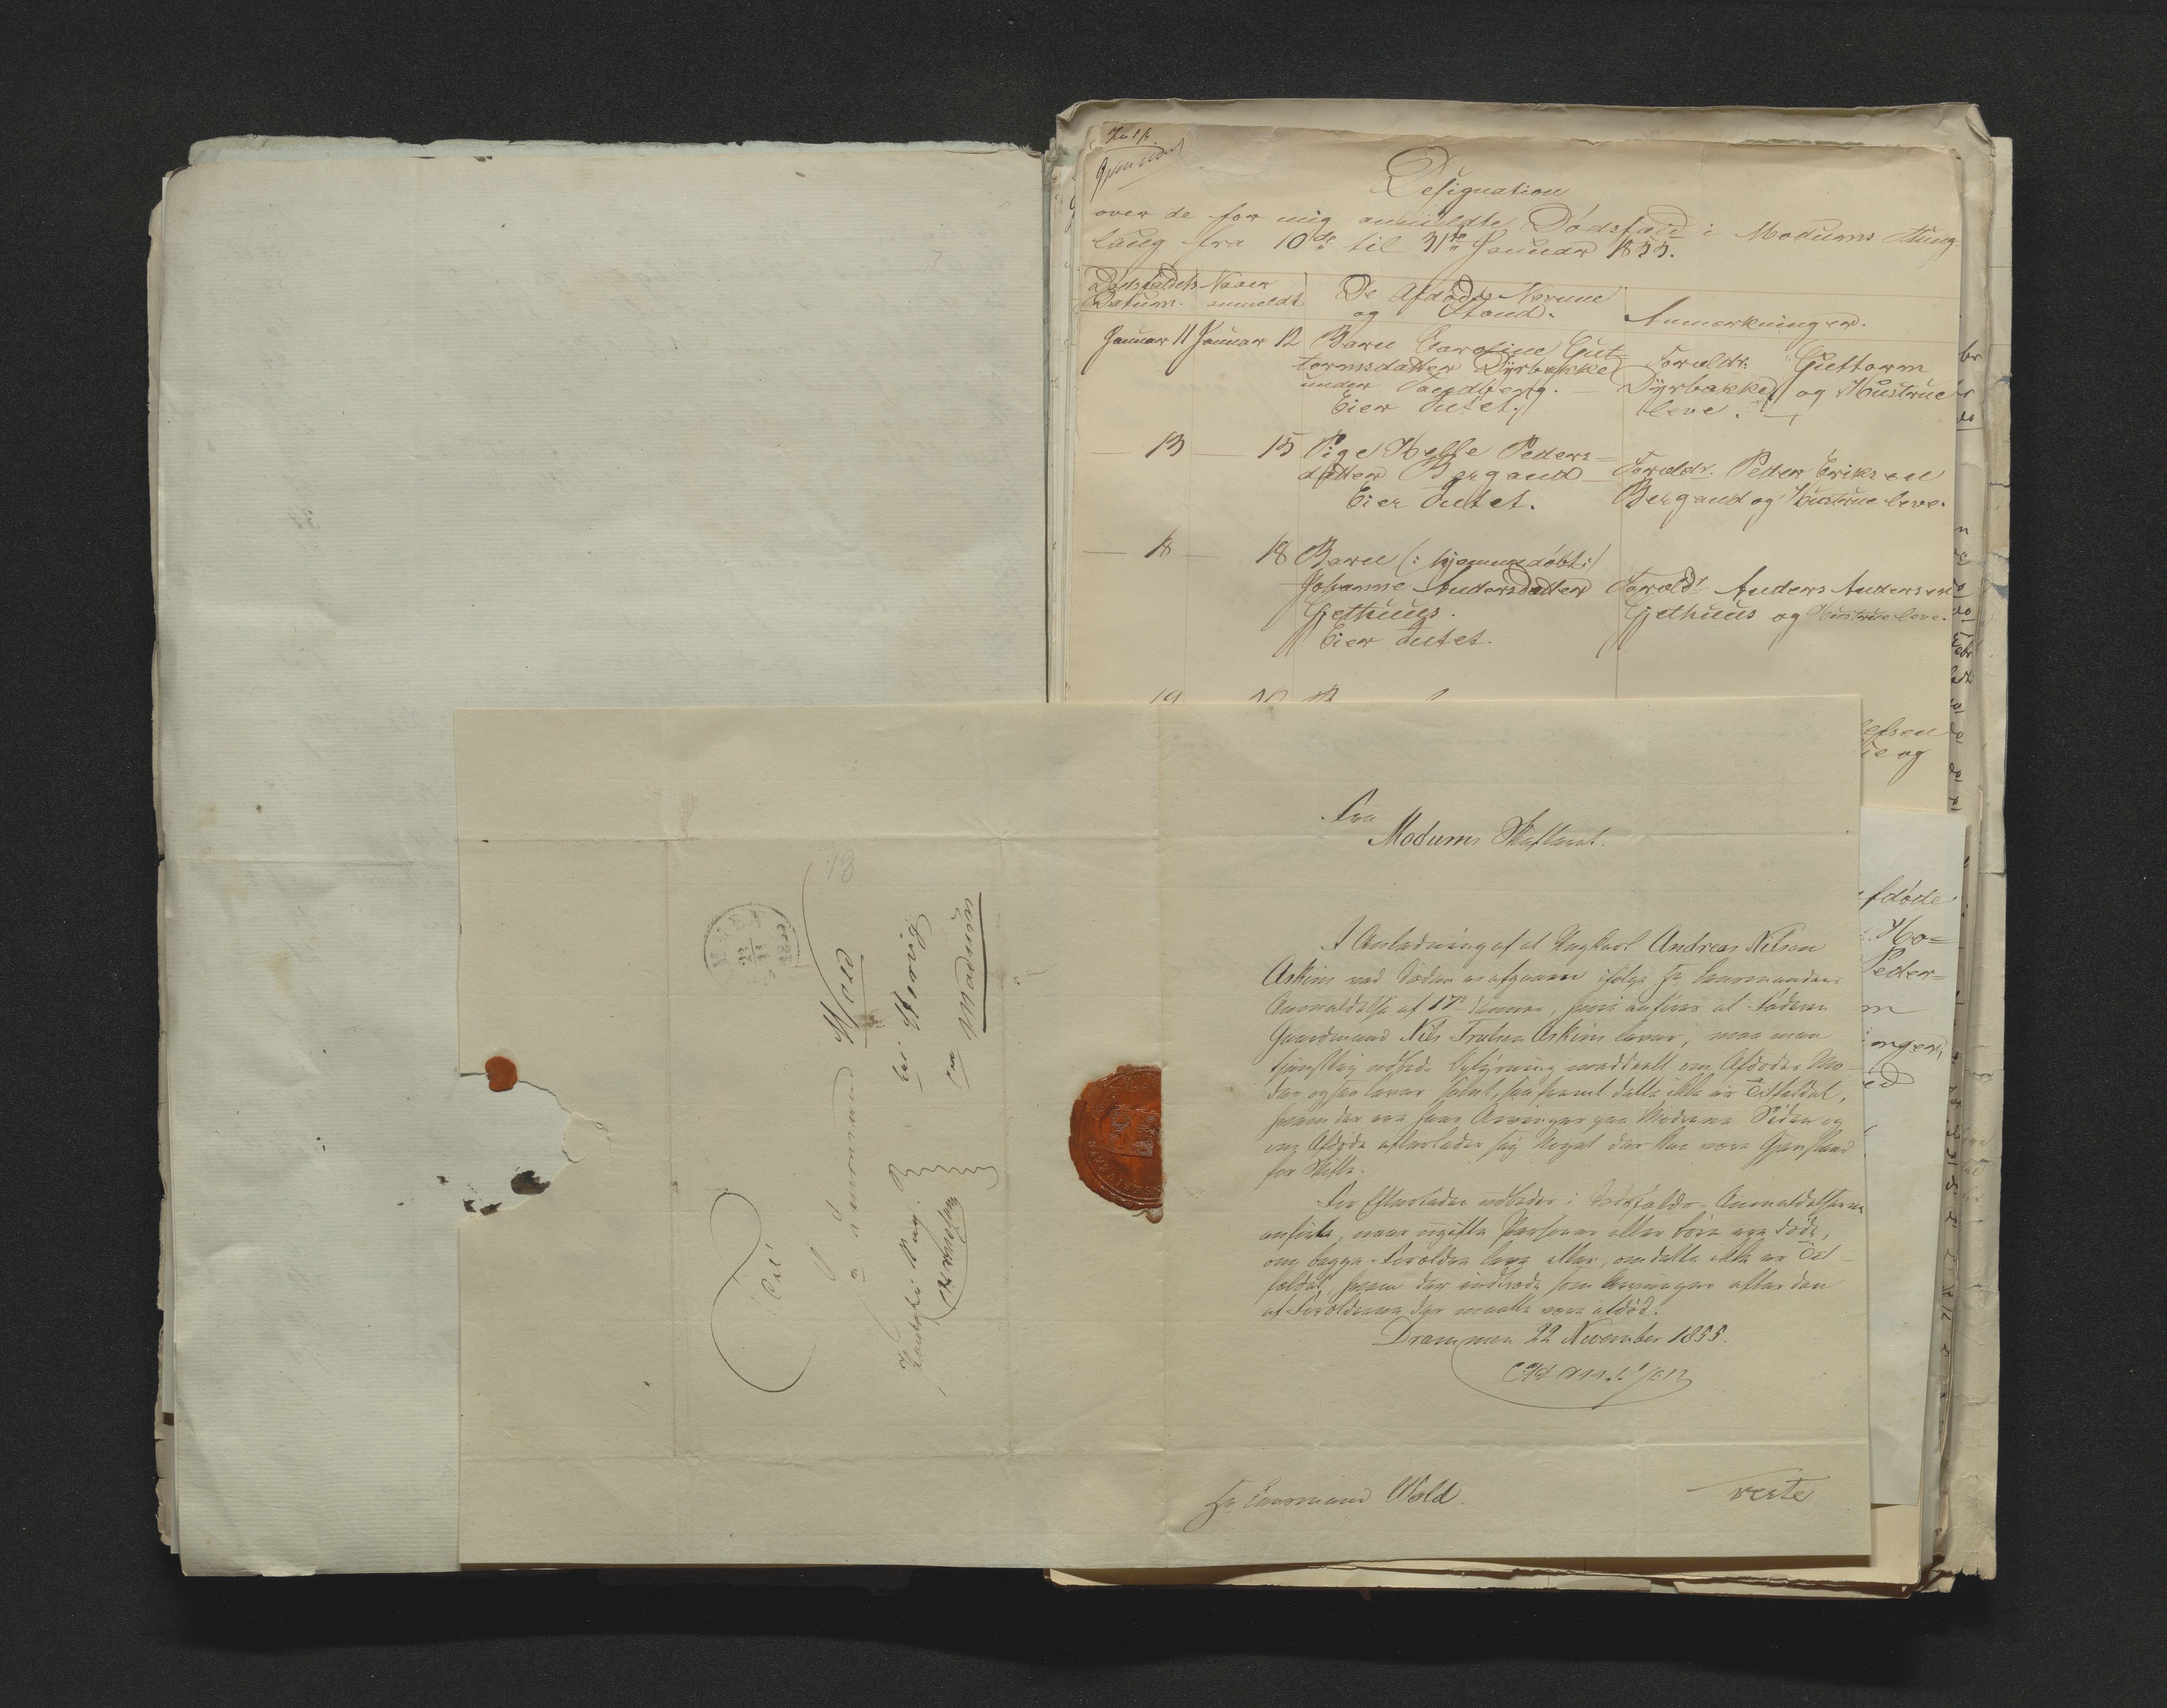 Designation
over de for mig anmeldte Dødsfald i Modums Thing-
laug fra 10de til 31te Januar 1855.
Dødsfaldets Datum.
Naar anmeldt
De Afdødes Navne
og Stand.
Anmærkninger.
Januar 11 Januar 12 Barn Caroline Gut-
tormsdatter Dyrbakke
under Sandberg.
Eier Intet.
Foreldr. Guttorm
Dyrbakke og Hustrue
leve.
— 13 — 15 Pige Helle Peders-
datter Bergand
Eier Intet.
Foreldr. Peder Eriksen
Bergand og Hustrue leve.
— 18 — 18 Barn (: hjemmedøbt :)
Johanne Andersdatter
Gjethuus.
Eier Intet.
Foreldr Anders Andersen
Gjethuus og Hustrue leve.
19 20
efsen
og
fdøde
Ho-
Peder-
Fra
Modums Skifteret.
I Anledning af at Ungkarl Andreas Nilsen
Askim ved Døden er afgaaen ifølge Hr Lensmandens
Anmeldelse af 17de dennes, hvori anføres at Faderen
Gaardmand Nils Trulsen Askim lever, maa man
tjenstlig udbede Oplysning meddeelt om Afdødes Mo-
der ogsaa lever samt, saafremt dette ikke er Tilfældet,
hvem der ere hans Arvinger paa Moderens Side og
om Afdøde efterlader sig Noget der kan være Gjenstand
for Skifte.
For Eftertiden udbedes i Dødsfalds-Anmeldelserne
anført, naar ugifte Personer eller Børn ere døde,
om begge Forældre leve eller, om dette ikke er Til-
fældet, hvem der indtræde som Arvinger efter den
af Forældrene der maatte være afdød.
Drammen 22 November 1855.
Hr Lensmand Wold.
verte
Til
Hr Lensmand Wold
paa Modum
22
11
1855
13